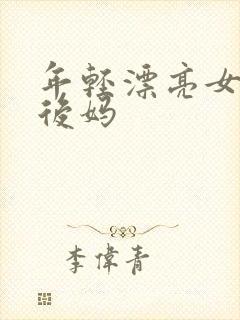 年轻漂亮女
後妈
李偉青